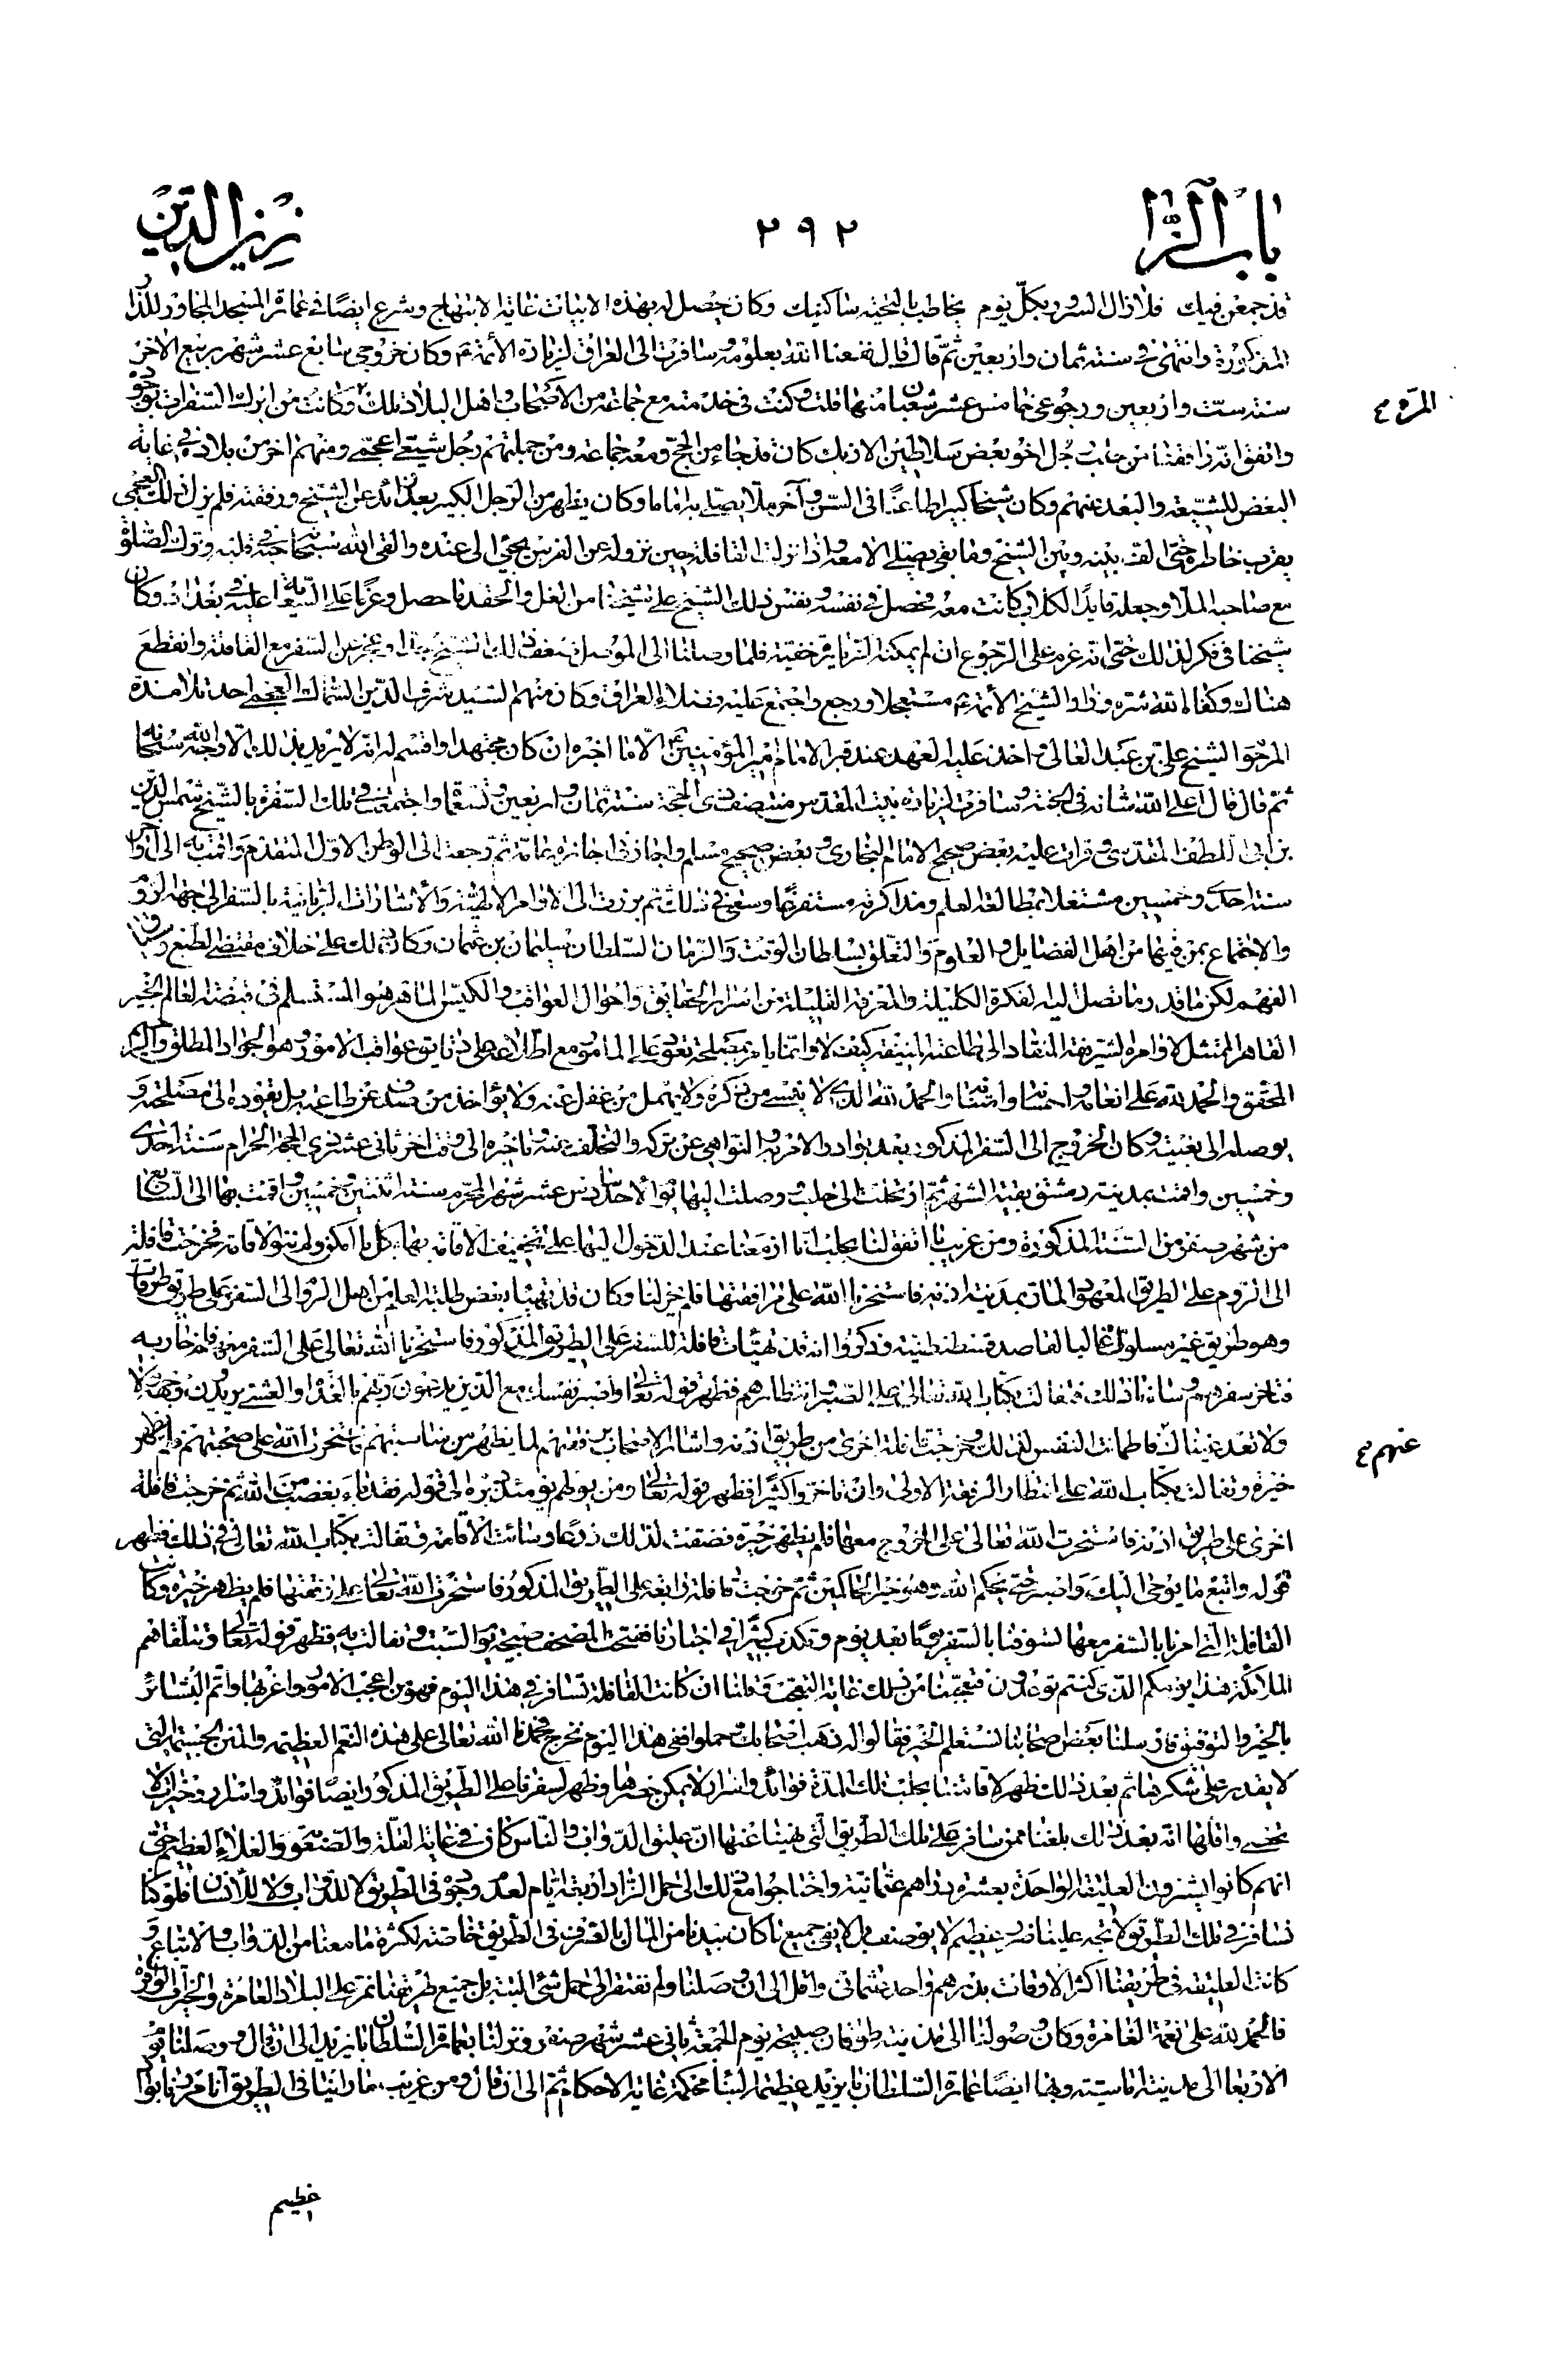 باب الزا
٢٩٢
زين الدين
قد جمعن فيك فلا زال السرور بكل يوم يخاطب بالتحية ساكنيك وكان حصل له بهذه الابيات غاية الابتهاج وشرع ايضا في عمارة المسجد المجاور للدار
المذكورة وانتهى في سنة ثمان واربعين ثم قال قال نفعنا الله بعلومه وسافرت الى العراق لزيارة الأئمة ع وكان خروجي سابع عشر شهر ربيع الاخر
سنة ست واربعين ورجوعي خامس عشر شعبان منها قلت وكنت في خدمته مع جماعة من الأصحاب واهل البلاد تلك وكانت من ابرك السفرات بوجوده
المرة
واتفق انه رافقنا من حلب رجل اخو بعض سلاطين الازبك كان قد جاء من الحج ومعه جماعة ومن جملتهم رجل شيعي اعجمي ومنهم اخر من بلاده في غاية
البغض للشيعة والبعد عنهم وكان شيخا كبيرا طاعنا في السن وآخر ملا يصلي به اماما وكان يظهر من الرجل الكبير بعد زائد عن الشيخ ورفقته فلم يزل ذلك العجمي
يقرب خاطره حتى الف بينه وبين الشيخ وما بقي يصلي الا معه واذا نزلت القافلة حين نزوله عن الفرس يجيء الى عنده والقى الله سبحانه حبه في قلبه وترك الصلوة
مع صاحبه الملا وجعله قايد الكلاب كانت معه فحصل في نفسه ونفس ذلك الشيخ على شيخنا من الغل والحقد ما حصل وعزما على السعاية عليه في بغداد وكان
شيخنا في فكر لذلك حتى انه عزم على الرجوع ان لم يمكنه الزيارة خفية فلما وصلنا الى الموصل ضعف ذلك الشيخ جدا وعجز عن السفر مع القافلة وانقطع
هناك وكفاه الله شره وزار الشيخ الأئمة ع مستعجلا ورجع واجتمع عليه فضلاء العراق وكان منهم السيد شرف الدين السماك العجمي احد تلامذة
المرحوم الشيخ علي بن عبد العالي واخذ عليه العهد عند قبر الامام امير المؤمنين ع الا ما اخبره ان كان مجتهدا واقسم له انه لا يريد بذلك الا وجه الله سبحانه
ثم قال قال اعلى الله شانه في الجنة وسافرت لزيارة بيت المقدس منتصف ذي الحجة سنة ثمان واربعين وتسعمائة واجتمعت في تلك السفرة بالشيخ شمس الدين
بن ابي اللطف المقدسي وقرات عليه بعض صحيح الامام البخاري وبعض صحيح مسلم واجازني اجازة عامة ثم رجعت الى الوطن الاول المتقدم واقمت به الى اواخر
سنة احدى وخمسين مشتغلا بمطالعة العلم ومذاكرته مستفرغا وسعي في ذلك ثم برزت الى الاوامر الالهية والأشارات الربانية بالسفر الى جهة الروم
والاجتماع بمن فيها من اهل الفضايل والعلوم والتعلق بسلطان الوقت والزمان السلطان سليمان بن عثمان وكان ذلك على خلاف مقتضى الطبع وسياق
الفهم لكن ما قدر ما تصل اليه الفكرة الكليلة والمعرفة القليلة من اسرار الحقايق واحوال العواقب والكيس الماهر هو المستسلم في قبضة العالم الخبير
القاهر الممتثل لاوامره الشريفة المنقاد الى طاعته المنيفة كيف لا وانما يامر بمصلحة تعود على المامور مع اطلاعه على دقايق عواقب الامور وهو الجواد المطلق والرحيم
المحقق والحمد لله على انعامه واحسانه وامتنانه والحمد لله الذي لا ينسى من ذكره ولا يهمل من غفل عنه ولا يؤاخذ من صدف عن طاعته بل يقوده الى مصلحته و
يوصله الى بغيته وكان الخروج الى السفر المذكور بعد بوادر الاوامر به والنواهي عن تركه والتخلف عنه وتاخيره الى وقت اخر ثاني عشر ذي الحجة الحرام سنة احدى
وخمسين واقمت بمدينة دمشق بقية الشهر ثم ارتحلت الى حلب ووصلت اليها يوم الاحد سادس عشر شهر المحرم سنة اثنتين وخمسين واقمت بها الى السابع
من شهر صفر من السنة المذكورة ومن غريب ما اتفق لنا بحلب انا ازمعنا عند الدخول اليها على تخفيف الاقامة بها بكل ما امكن ولم ننو الاقامة فخرجت قافلة
الى الروم على الطريق المعهود المار بمدينة اذنه فاستخرنا الله على مرافقتها فلم يخر لنا وكان قد تهيأ بعض طلبة العلم من اهل الروم الى السفر على طريق طوقات
وهو طريق غير مسلوك غالبا لقاصد قسطنطنية وذكروا انه قد تهيأت قافلة للسفر على الطريق المذكور فاستخرنا الله تعالى على السفر معهم فاخار به
فتاخر سفرهم وساءنا ذلك فتفالت بكتاب الله تعالى على الصبر وانتظارهم فظهر قوله تعالى واصبر نفسك مع الذين يدعون ربهم بالغداة والعشي يريدون وجهه
ولا تعد عيناك فاطمانت النفس لذلك وخرجت قافلة اخرى من طريق اذنه واشار الاصحاب برفقتهم لما يظهر من مناسبتهم فاستخرت الله على صحبتهم فلم يظهر
عنهم
خيرة وتفالت بكتاب الله على انتظار الرفقة الاولى وان تاخروا كثيرا فظهر قوله تعالى ومن يولهم يومئذ دبره الى قوله فقد باء بغضب من الله ثم خرجت قافلة
اخرى على طريق اذنه فاستخرت الله تعالى على الخروج معها فلم يظهر خيرة فضقت لذلك ذرعا وسامت الاقامة وتفالت بكتاب الله تعالى في ذلك فظهر
قوله واتبع ما يوحى اليك واصبر حتى يحكم الله وهو خير الحاكمين ثم خرجت قافلة رابعة على الطريق المذكور فاستخرت الله تعالى على رفقتها فلم يظهر خيرة وكانت
القافلة التي امرنا بالسفر معها تسوفنا بالسفر يوما بعد يوم وتكذب كثيرا في اخبارنا ففتحت المصحف صبيحة يوم السبت وتفالت به فظهر قوله تعالى وتتلقاهم
الملائكة هذا يومكم الذي كنتم توعدون فتعجبنا من ذلك غاية التعجب وقلنا ان كانت القافلة تسافر في هذا اليوم فهو من اعجب الامور واغربها واتم البشائر
بالخير والتوفيق فارسلنا بعض اصحابنا نستعلم الخبر فقالوا له اذهب الى اصحابك وحملوا ففي هذا اليوم نخرج فحمدنا الله تعالى على هذه النعم العظيمة والمنن الجسيمة التي
لا يقدر على شكرها ثم بعد ذلك ظهر لاقامتنا بحلب تلك المدة فوائد واسرار لا يمكن حصرها وظهر لسفرنا على الطريق المذكور ايضا فوائد واسرار وخيرات لا
تحصى واقلها انه بعد ذلك بلغنا ممن سافر على تلك الطريق التي نهينا عنها ان عليق الدواب والناس كان في غاية القلة والصعوبة والغلاء العظيم حتى
انهم كانوا يشترون العليقة الواحدة بعشرة دراهم عثمانية واحتاجوا مع ذلك الى حمل الزاد اربعة ايام لعدم وجوده في الطريق لا للدواب ولا للأنسان فلو كنا
نسافر في تلك الطريق لاتجه علينا ضرر عظيم لا يوصف بل لا يفي جميع ما كان بيدنا من المال بالصرف في الطريق خاصة لكثرة ما معنا من الدواب والاتباع و
كانت العليقة في طريقنا اكثر الاوقات بدرهم واحد عثماني واقل الى ان وصلنا ولم نفتقر الى حمل شئ البتة بل جميع طريقنا نمر على البلاد العامرة والخيرات الوافرة
فالحمد لله على نعمه الغامرة وكان وصولنا الى مدينة طوقات صبيحة يوم الجمعة ثاني عشر شهر صفر ونزلنا بعمارة السلطان بايزيد الى ان قال ووصلنا يوم
الاربعا الى مدينة اماسيه وبها ايضا عمارة السلطان بايزيد عظيمة البنا محكمة غاية الاحكام ثم الى ان قال ومن غريب ما راينا في الطريق انا مررنا بواد
عظيم